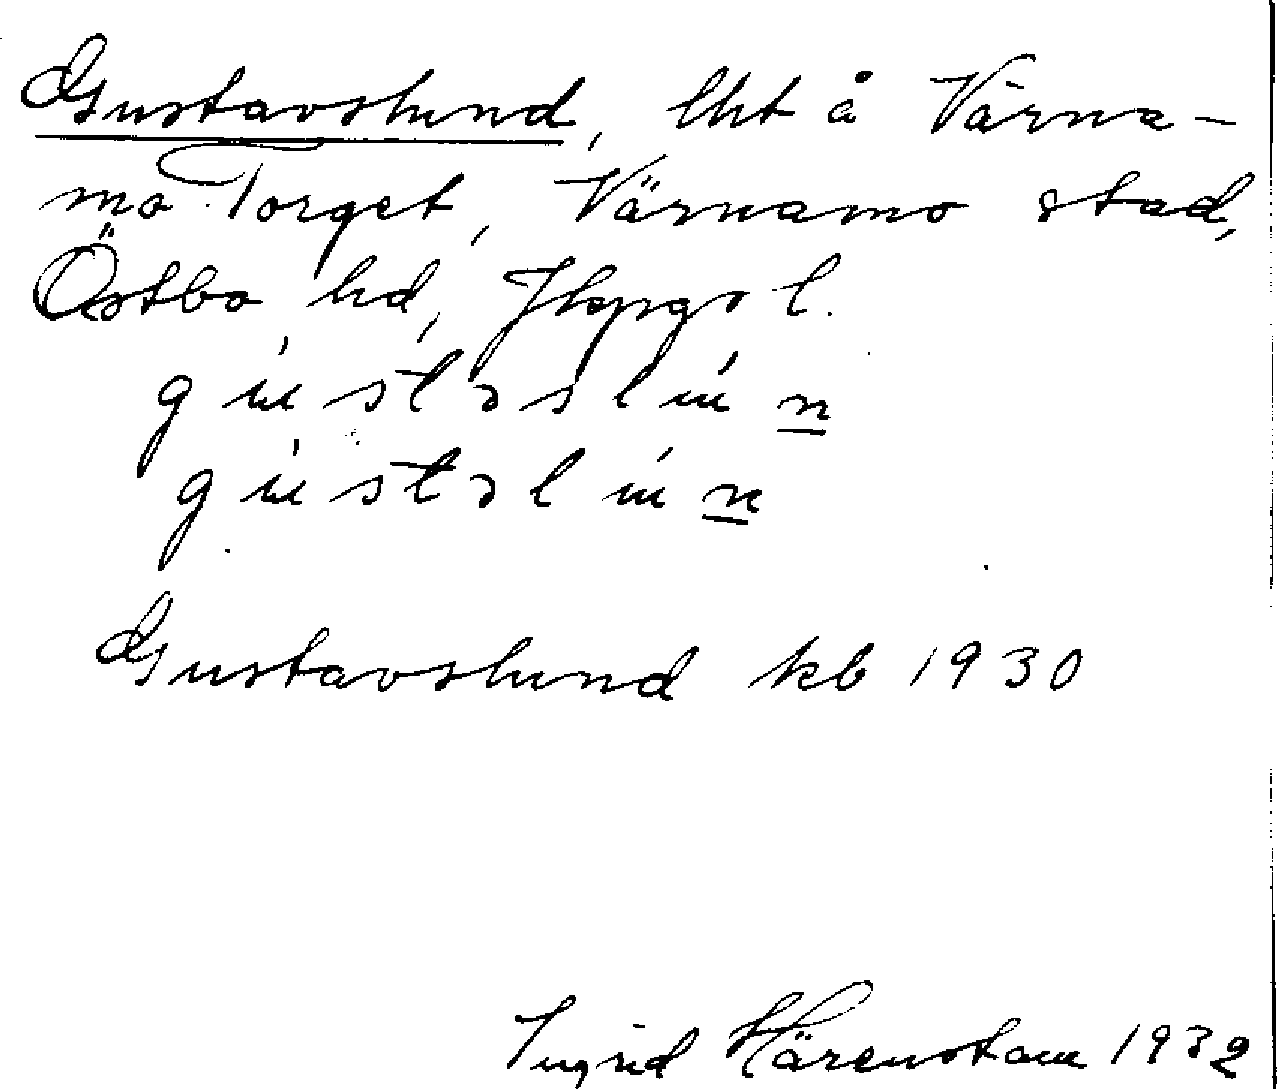 Gustavslund, lht å Värna-
mo Torget, Värnamo stad,
Östbo hd, Jkpgs l.
gùstəslùn
gùstəlùn
Gustavslund kb 1930
Ingrid Härenstam 1932